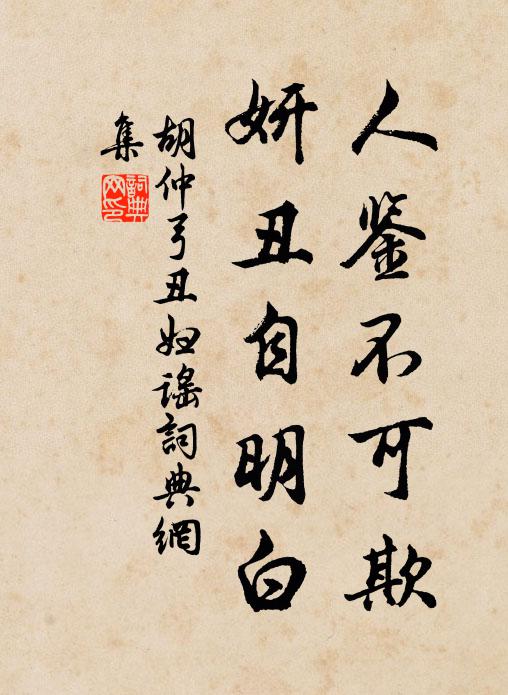 人鉴不可欺
妍丑自明白
胡仲弓丑妇谣詞典網
集
詞典
网印